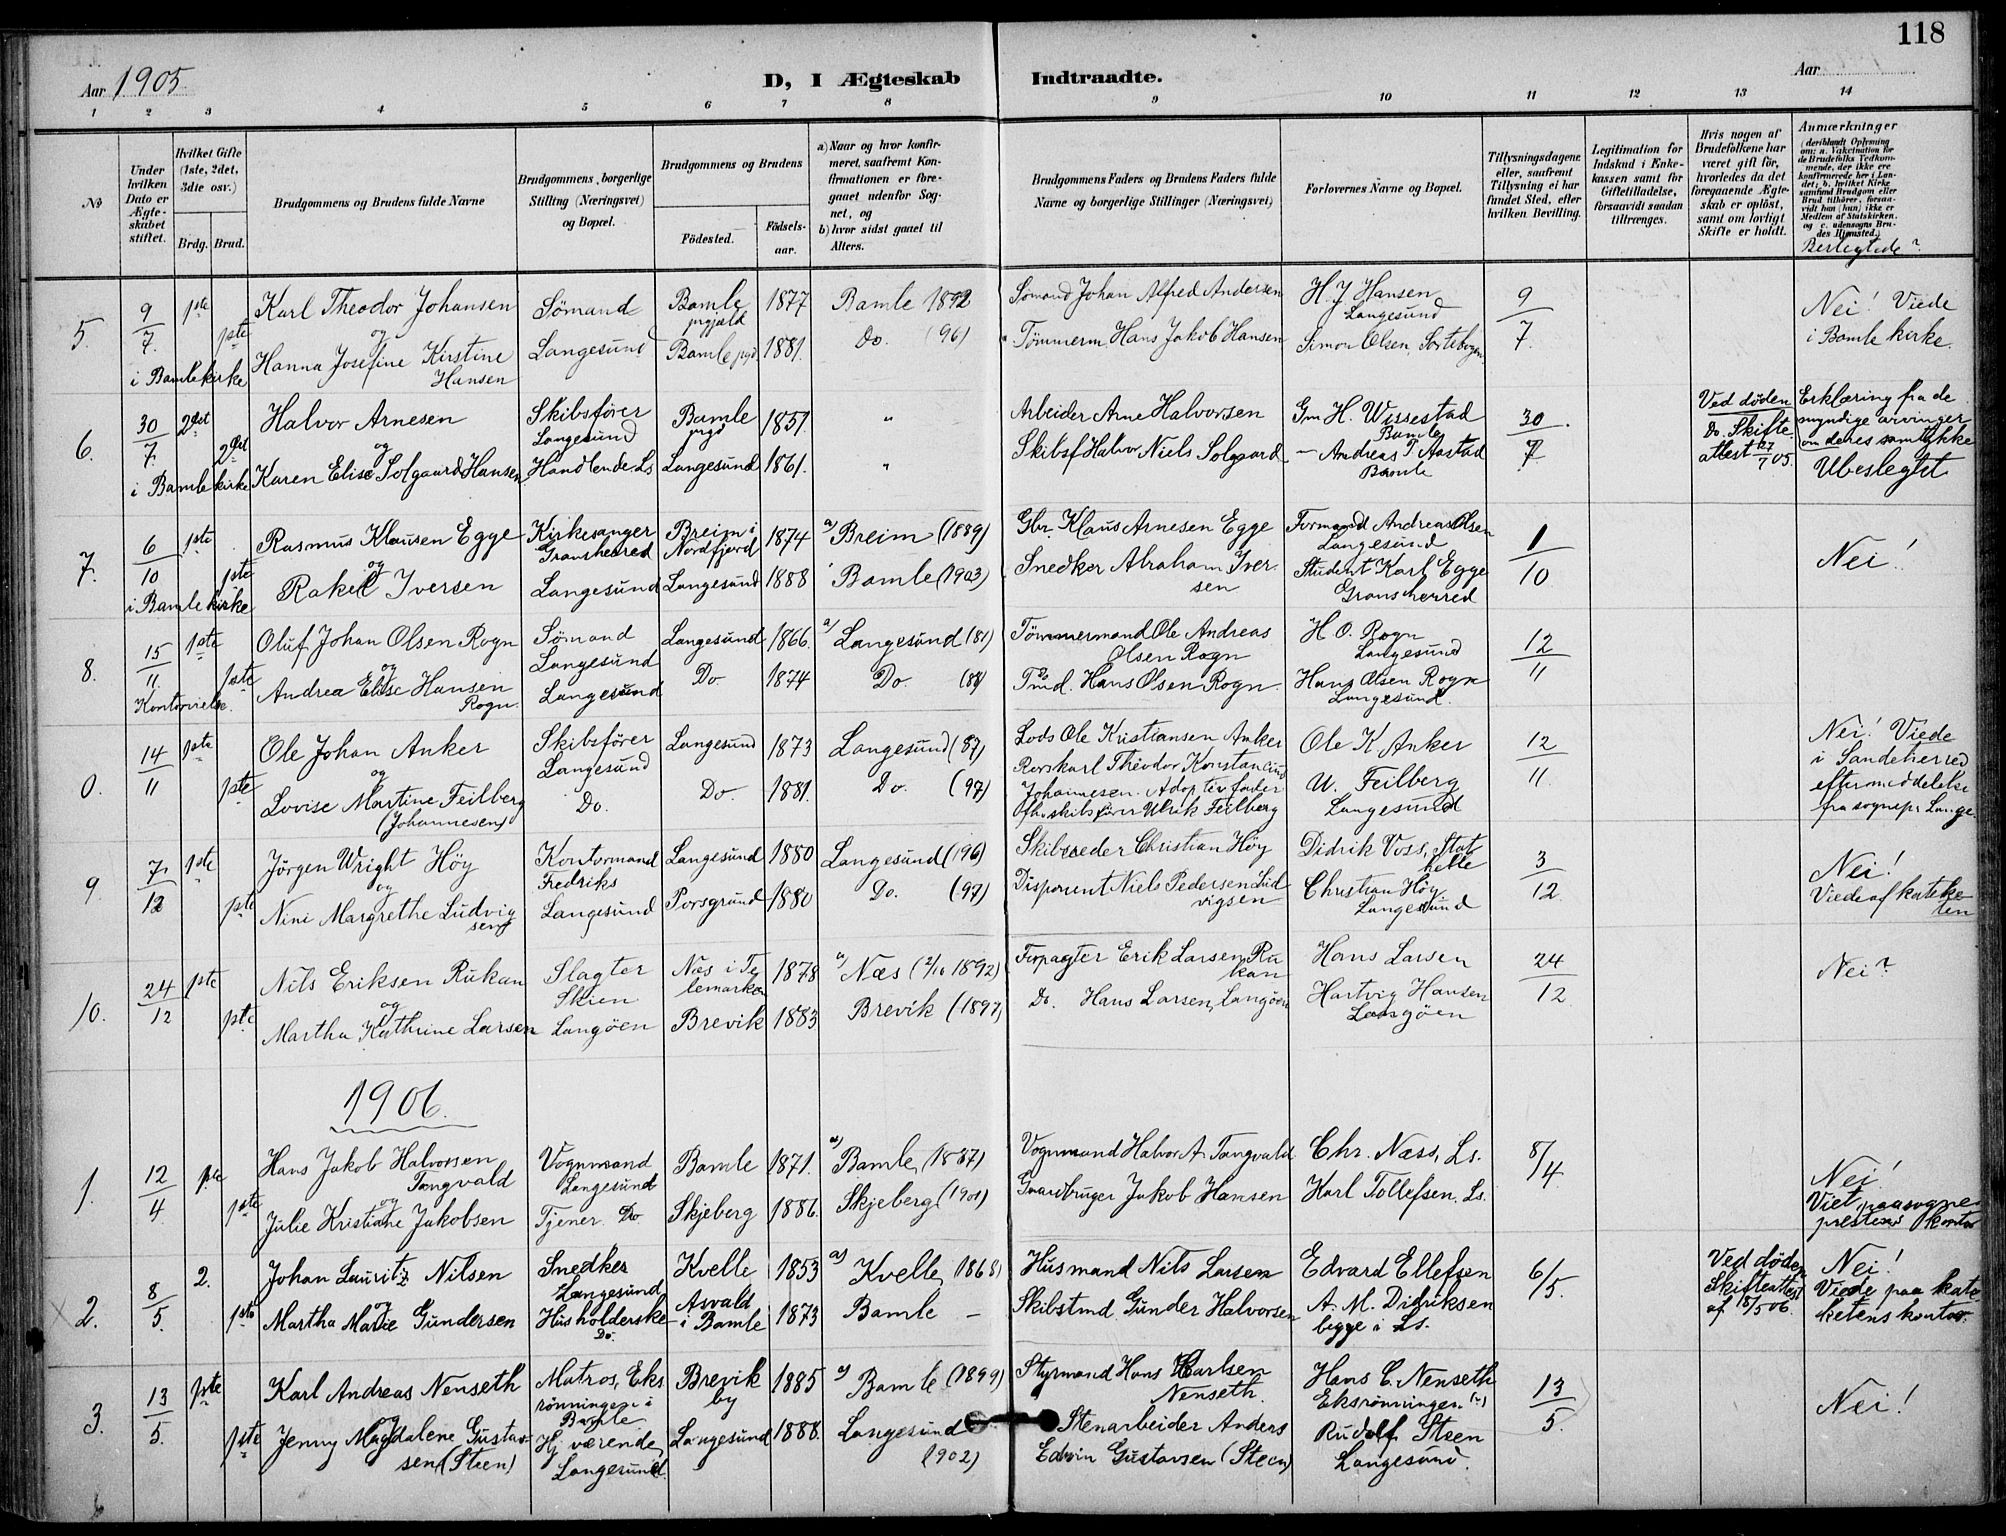 118
Aar 1905.
D, I Ægteskab Indtraadte.
Aar
1 2 3 4 5 6 7 8 9 10 11 12 13 14
No
Under hvilken Dato er Ægteskabet stiftet.
Hvilket Gifte (1ste, 2det, 3die osv.)
Brdg. Brud.
Brudgommens og Brudens fulde Navne
Brudgommens borgerlige Stilling (Næringsvei) og Bopæl.
Brudgommens og Brudens
Födested. Födsels-aar.
a) Naar og hvor konfirmeret, saafremt Konfirmationen er foregaaet udenfor Sognet, og
b) hvor sidst gaaet til Alters.
Brudgommens Faders og Brudens Faders fulde Navne og borgerlige Stillinger (Næringsvei)
Forlovernes Navne og Bopæl.
Tillysningsdagene eller, saafremt Tillysning ei har fundet Sted, efter hvilken Bevilling.
Legitimation for Indskud i Enkekassen samt for Giftetilladelse, forsaavidt saadan tiltrænges.
Hvis nogen af Brudefolkene har været gift för, hvorledes da det foregaaende Ægteskab er oplöst, samt om lovligt Skifte er holdt.
Anmærkninger (deriblandt Oplysning om: a. Vakcination for de Brudefolks Vedkommende, der ikke ere konfirmerede her i Landet; b. hvilket Kirkesamfund Brudgom eller Brud tilhörer, forsaavidt han (hun) ikke er Medlem af Statskirken, og c. udensogns Brudes Hjemsted.)
Beslegtede?
5. 9/7. 1ste Karl Theodor Johansen Sömand Bamle prgjæld 1877 Bamle 1892 Sömand Johan Alfred Andersen H. J Hansen Langesund 9/7. Nei! Viede
og
1ste Hanna Josefine Kirstine Hansen Langesund Bamle pgd 1881. Do. (96) Tömmerm Hans Jakob Hansen Simon Olsen, Sortebogen i Bamle kirke.
i Bamle kirke
6. 30/7. 2det Halvor Arnesen Skibsförer Langesund Bamle prgd 1851. " Arbeider Arne Halvorsen Gm H. Wissestad Bamle 30/7. Ved döden Erklæring fra de
og
2det Karen Elise Solgaard Hansen Handlende Ls Langesund 1861. " Skibsf Halvor Niels Solgaard – Andreas T. Aastad Bamle Do. Skifteattest 27/7 05. myndige arvinger om deres samtykke
i Bamle kirke Ubeslegtet
7. 6/10 1ste Rasmus Klausen Egge Kirkesanger Gransherred Breim i Nordfjord 1874 a) Breim (1889) Gbr. Klaus Arnesen Egge Formand Andreas Olsen Langesund 1/10 Nei!
og
1ste Rakel Iversen Langesund Langesund 1888 Bamle (1903) Snedker Abraham Iversen Student Karl Egge Gransherred
i Bamle kirke
8. 15/11. 1ste Oluf Johan Olsen Rogn Sömand Langesund Langesund 1866. a) Langesund (81) Tömmermand Ole Andreas Olsen Rogn H. O. Rogn Langesund 12/11
og
1ste Andrea Elise Hansen Rogn. Langesund Do 1874 Do. (88) Tmd. Hans Olsen Rogn. Hans Olsen Rogn Langesund.
Kontorvielse.
0. 14/11 1ste Ole Johan Anker Skibsförer Langesund Langesund 1873 Langesund (87) Lods Ole Kristiansen Anker Ole K Anker 12/11. Nei! Viede
og
1ste Lovise Martine Feilberg (Johannesen) Do. Do. 1881. Do. (97) Rorskarl Theodor Konstantius Johannesen. Adoptivfader Ofhv skibsförer Ulrik Feilberg U. Feilberg Langesund i Sandeherred efter meddelelse fra sognepr Lange.
9. 7/12 1ste Jörgen Wright Höy Kontormand Fredriks Langesund 1880 Langesund (196) Skibsreder Christian Höy Didrik Voss, Stathelle 3/12. Nei!
og
1ste Nini Margrethe Ludvigsen Langesund Porsgrund 1880 Do. (97) Disponent Niels Pedersen Ludvigsen Christian Höy Langesund Viede af kateketen
10. 24/12 1ste Nils Eriksen Rukan Slagter Skien Næs i Telemarken 1878 a) Næs (2/10 1892) Forpagter Erik Larsen Rukan Hans Larsen 24/12. Nei?
og
1ste Martha Kathrine Larsen Langöen Brevik 1883 Brevik (1897) Do. Hans Larsen, Langöen Hartvig Hansen Langöen
1906.
1. 12/4. 1ste Hans Jakob Halvorsen Tangvald Vognmand Langesund Bamle 1871. a) Bamle (1887) Vognmand Halvor A Tangvald Chr. Næss, Ls. 8/4. Nei!
og
1ste Julie Kristiane Jakobsen Tjener. Do Skjeberg 1886. Skjeberg (1901) Gaardbruger Jakob Hansen Karl Tollefsen, Ls. Viet paa sogneprestens kontor
2. 8/5. 2. Johan Lauritz Nilsen Snedker Langesund Kvelle 1853 a) Kvelle, 1868) Husmand Nils Larsen Edvard Ellefsen 6/5. Ved döden Nei!
og
1ste Martha Marie Gundersen Husholderske Do. Asvald i Bamle 1873 Bamle – Skibstmd. Gunder Halvorsen A. M. Didriksen begge i Ls. Skifteattest af 18/5 06. Viede paa katekétens kontor.
3. 13/5. 1ste Karl Andreas Nenseth Matros, Eksrönningen i Bamle Brevik by 1885 a) Bamle (1899) Styrmand Hans Carlsen Nenseth. Hans C. Nenseth Eksrönningen 13/5. Nei!
og
1ste Jenny Magdalene Gustavsen (Steen) Hj. værende Langesund Langesund 1888. Langesund (1902) Stenarbeider Anders Edvin Gustavsen (Steen) Rudolf Steen Langesund.